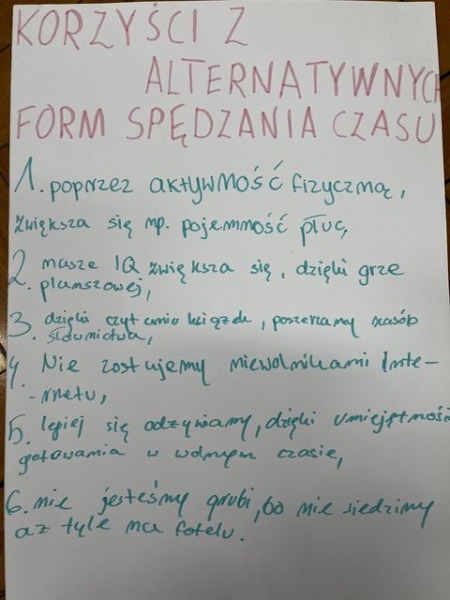 KORZYŚCI Z
ALTERNATYWNYCH
FORM SPĘDZANIA CZASU
1. poprzez aktywność fizyczną,
zwiększa się np. pojemność płuc,
2. nasze IQ zwiększa się, dzięki grze
planszowej,
3. dzięki czytaniu książek, poszerzamy zasób
słownictwa,
4. Nie zostajemy niewolnikami Inte-
-rnetu,
5. lepiej się odżywiamy, dzięki umiejętności
gotowania w wolnym czasie,
6. nie jesteśmy grubi, bo nie siedzimy
aż tyle na fotelu.